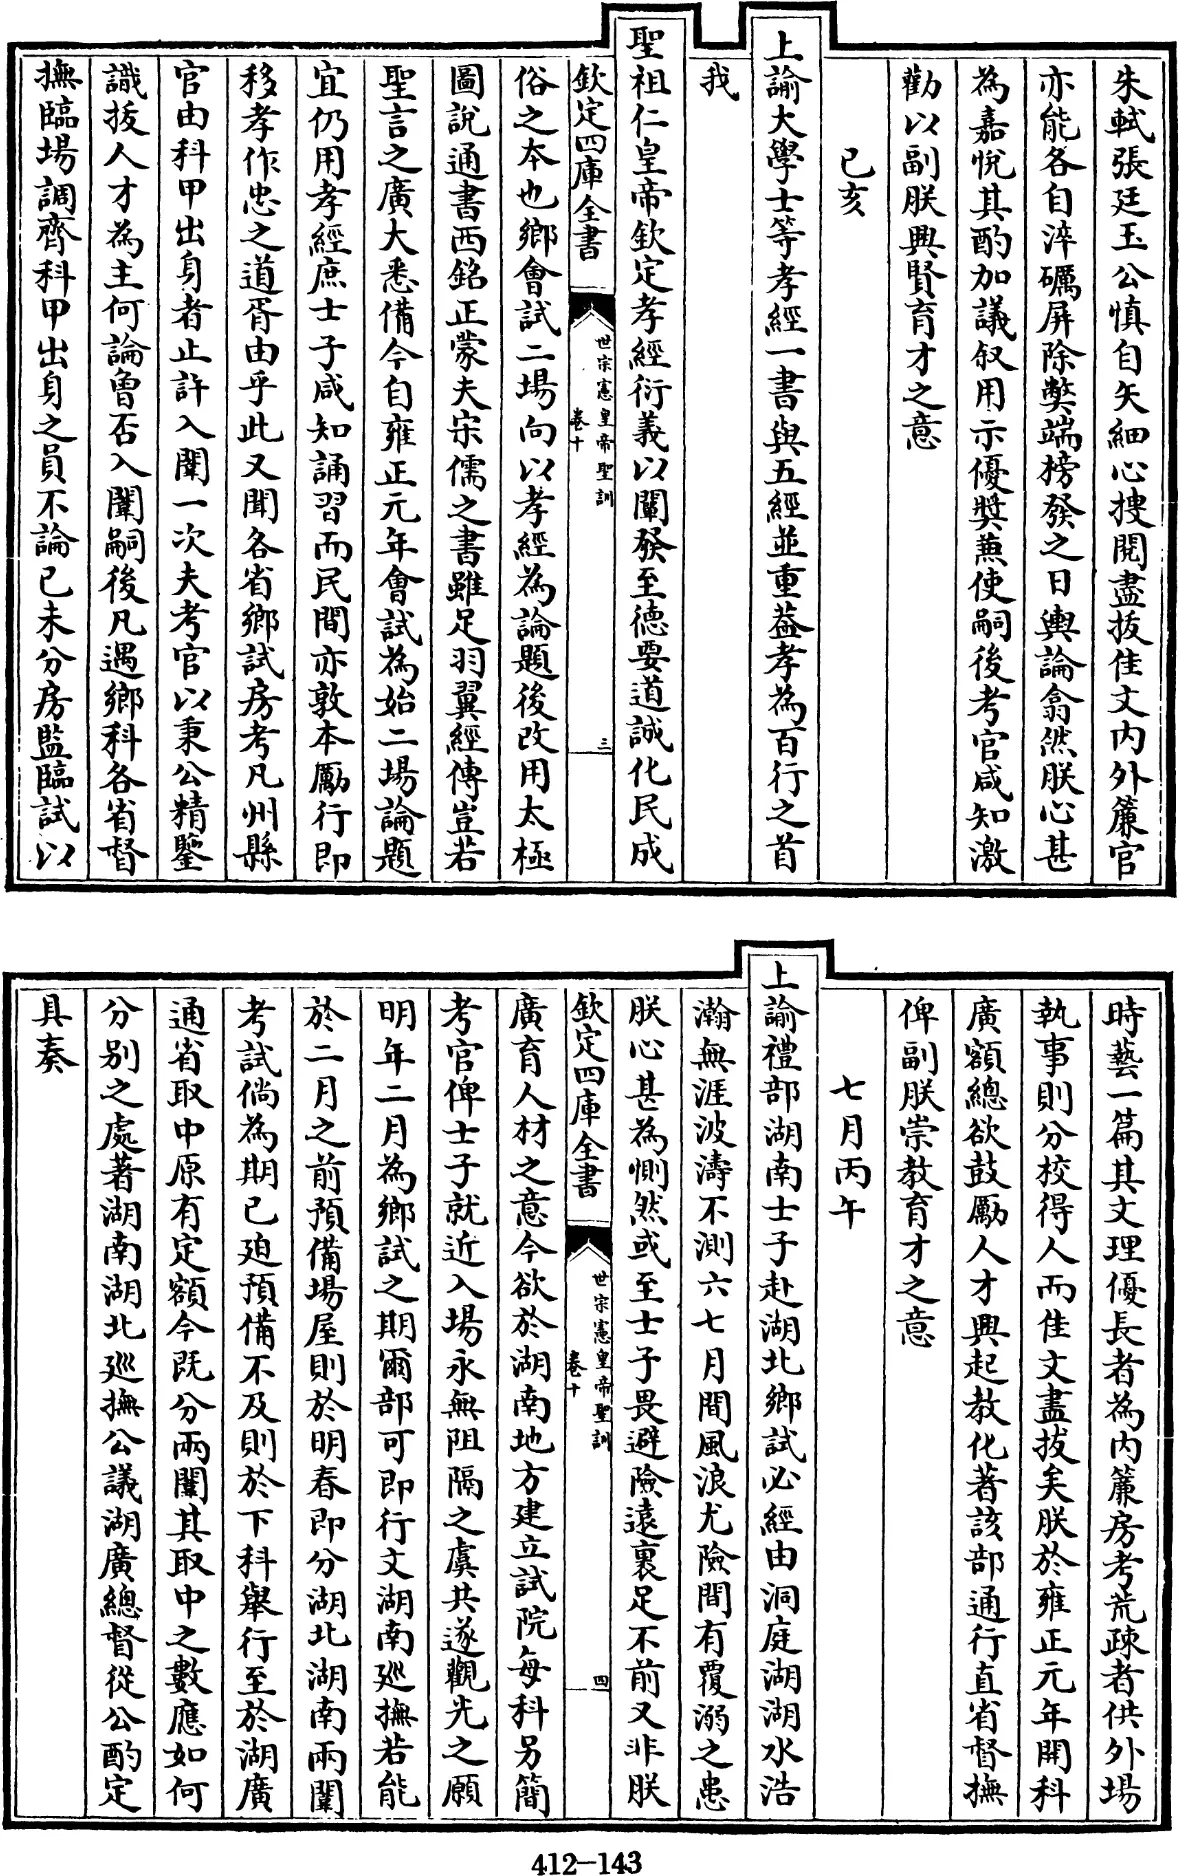 朱軾張廷玉公慎自矢細心搜閱盡拔佳文内外簾官
亦能各自淬礪屏除弊端榜發之日輿論翕然朕心甚
為嘉悅其酌加議叙用示優奬兼使嗣後考官咸知激
勸以副朕興賢育才之意
己亥
上諭大學士等孝經一書與五經並重葢孝為百行之首
我
聖祖仁皇帝欽定孝經衍義以闡發至德要道誠化民成
欽定四庫全書
世宗憲皇帝聖訓
卷十
三
俗之本也鄉會試二場向以孝經為論題後改用太極
圖說通書西銘正蒙夫宋儒之書雖足羽翼經傳豈若
聖言之廣大悉備今自雍正元年會試為始二場論題
宜仍用孝經庶士子咸知誦習而民間亦敦本勵行即
移孝作忠之道胥由乎此又聞各省鄉試房考凡州縣
官由科甲出身者止許入闈一次夫考官以秉公精鑒
識拔人才為主何論曾否入闈嗣後凡遇鄉科各省督
撫臨場調齊科甲出身之員不論已未分房監臨試以
時藝一篇其文理優長者為内簾房考荒疎者供外場
執事則分校得人而佳文盡拔矣朕於雍正元年開科
廣額總欲鼓勵人才興起教化著該部通行直省督撫
俾副朕崇教育才之意
七月丙午
上諭禮部湖南士子赴湖北鄉試必經由洞庭湖湖水浩
瀚無涯波濤不測六七月間風浪尤險間有覆溺之患
朕心甚為惻然或至士子畏避險遠裹足不前又非朕
欽定四庫全書
世宗憲皇帝聖訓
卷十
四
廣育人材之意今欲於湖南地方建立試院每科另簡
考官俾士子就近入場永無阻隔之虞共遂觀光之願
明年二月為鄉試之期爾部可即行文湖南廵撫若能
於二月之前預備場屋則於明春即分湖北湖南兩闈
考試倘為期已廹預備不及則於下科舉行至於湖廣
通省取中原有定額今既分兩闈其取中之數應如何
分别之處著湖南湖北廵撫公議湖廣總督從公酌定
具奏
412-143